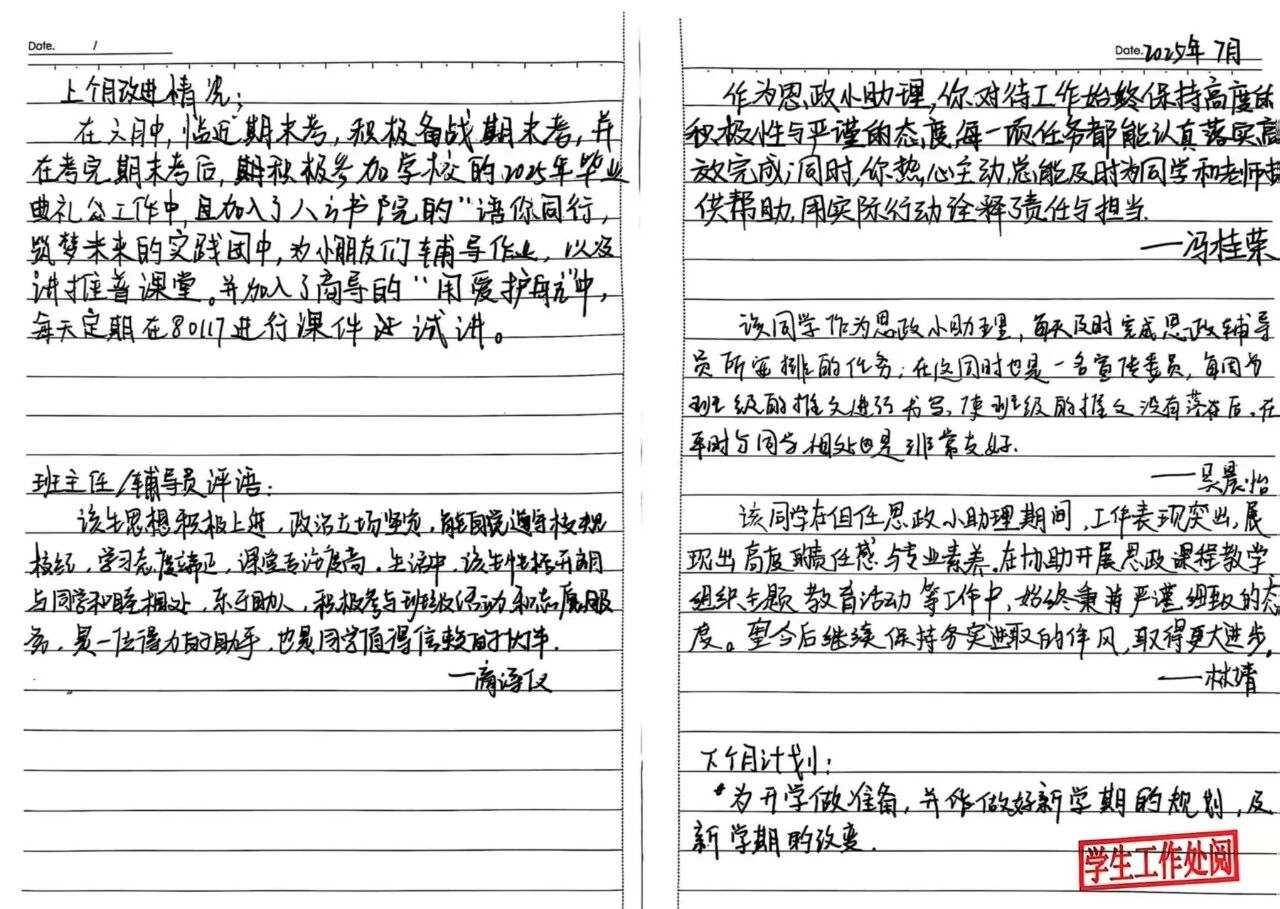 Date. /
上个月改进情况：
在六月中，临近期末考，积极备战期末考，并
在考完期末考后，期积极参加学校的2025年毕业
典礼公工作中，且加入了人文书院的“语你同行，
筑梦未来的实践团中，为小朋友们辅导作业，以及
讲推普课堂。并加入了商导的“用爱护航”中，
每天定期在80117进行课件试讲。
班主任/辅导员评语：
该生思想积极上进，政治立场坚定，能自觉遵守校规
校纪，学习态度端正，课堂专注度高。生活中，该生性格开朗
与同学和睦相处，乐于助人，积极参与班级活动和志愿服
务，是一位得力的助手，也是同学值得信赖的伙伴。
—商
Date. 2025年7月
作为思政小助理，你对待工作始终保持高度的
积极性与严谨的态度，每一项任务都能认真落实高
效完成；同时，你热心主动，总能及时为同学和老师提
供帮助，用实际行动诠释了责任与担当.
—冯桂荣
该同学作为思政小助理，每天及时完成思政辅导
员所安排的任务；在这同时也是一名宣传委员，每周为
班级的推文进行书写，使班级的推文没有落后。在
平时与同学相处也是非常友好.
—吴晨怡
该同学在担任思政小助理期间，工作表现突出，展
现出高度责任感与专业素养。在协助开展思政课程教学
组织主题教育活动等工作中，始终秉持严谨细致的态
度。望今后继续保持务实进取的作风，取得更大进步。
—林婧
下个月计划：
为开学做准备，并作做好新学期的规划，及
新学期的改变.
学生工作处阅